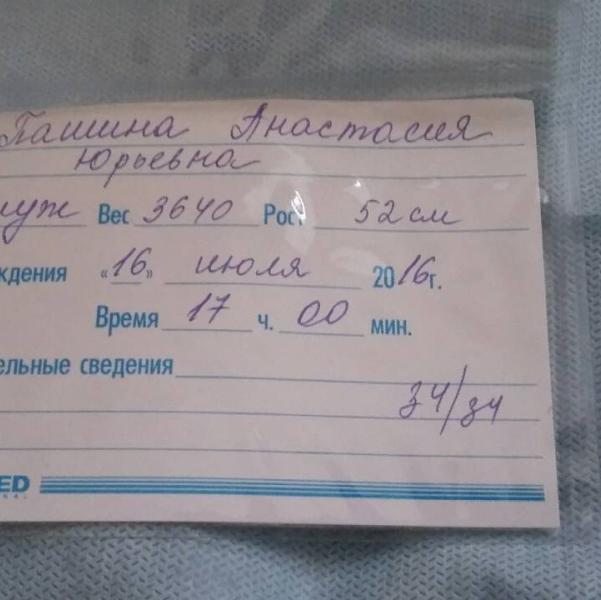 Пашина Анастасия
Юрьевна
муж Вес 3640 Рост 52 см
ждения «16» июля 2016г.
Время 17 ч. 00 мин.
ельные сведения
34/34
ED